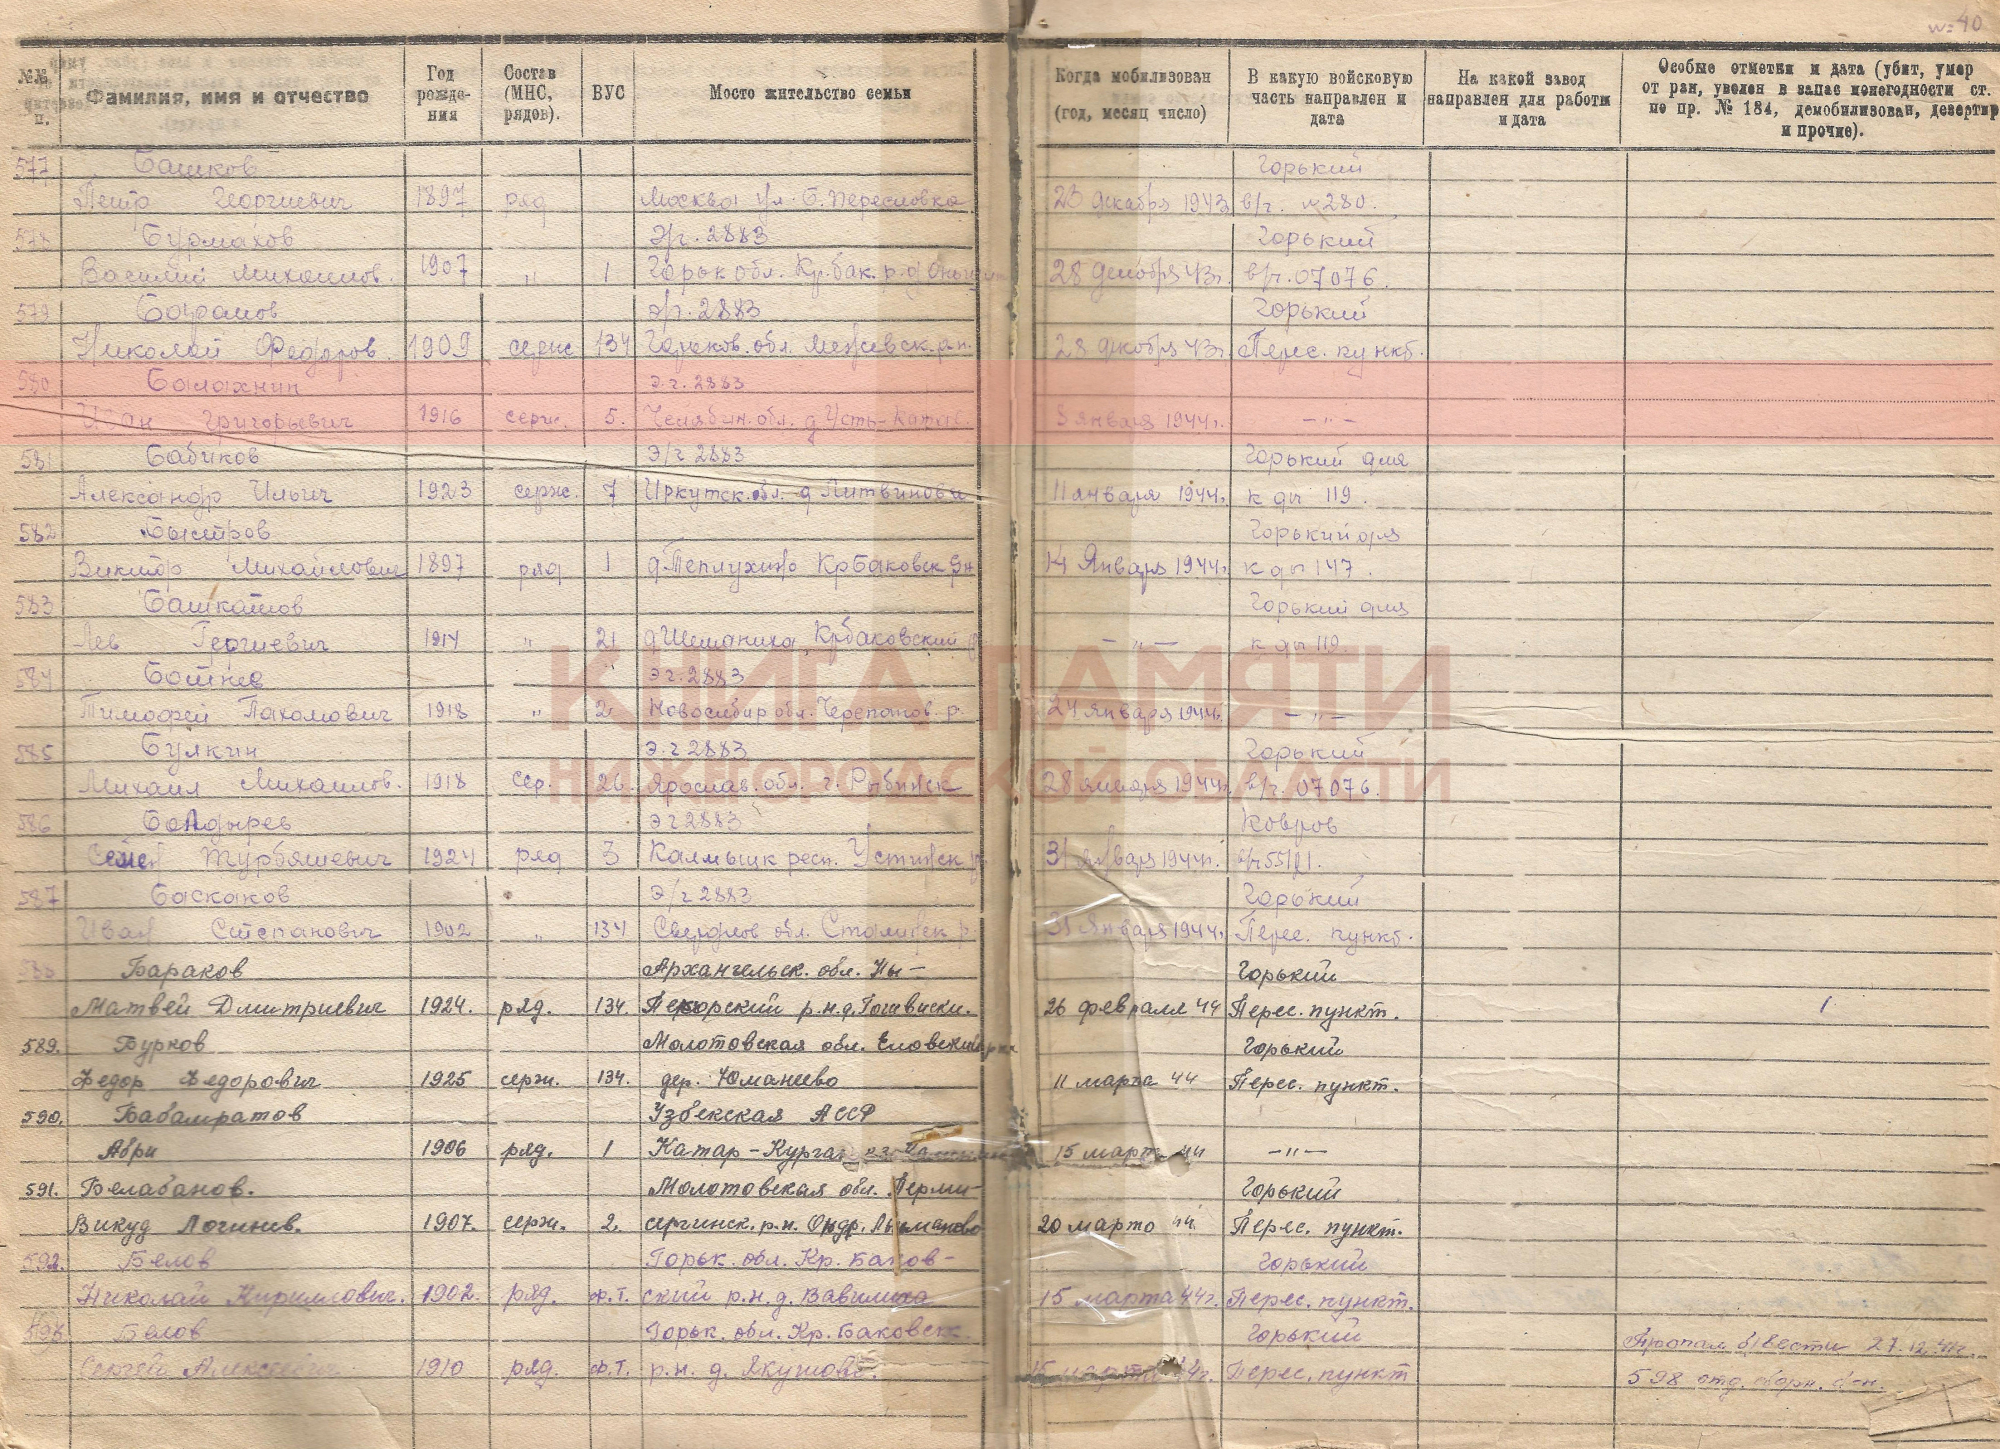 № 40
№№ п. Фамилия, имя и отчество Год рожде-ния Состав (МНС, рядов). ВУС Мосто жительство семьи Когда мобилизован (год, месяц число) В какую войсковую часть направлен и дата На какой завод направлен для работы и дата Особые отметки и дата (убит, умер от ран, уволен в запас понегодности ст. по пр. № 184, демобилизован, дезертир и прочие).
577 Башков Горький
Петр Георгиевич 1897 ряд Москва ул. Б. Переславка 23 декабря 1943 в/ч. № 280.
578 Бурмахов Э/г. 2883 Горький
Василий Михайлов. 1907 " 1 Горьк обл. Кр.бак. р. д 28 декабря 43г. в/ч. 07076.
579 э/г. 2883 Горький
Николай Федоров. 1909 серж 134 Горьков. обл. р.н. 28 декабря 43г. Перес. пункт.
580 Балахнин Э.г. 2883
Иван Григорьевич 1916 серж. 5. Челябин. обл. д Усть-Катав. 5 января 1944г. — " —
581 Бабиков Э/г 2883 Горький для
Александр Ильич 1923 серж. 7 Иркутск. обл. д Литвинова 11 января 1944г. к ды 119.
582 Быстров Горький для
Виктор Михайлович 1897 ряд 1 д Теплухино Крбаковск рн 14 Января 1944г. к ды 147
583 Башкатов Горький для
Лев Георгиевич 1914 " 21 д Шеманиха, Крбаковский — " — к ды 119.
584 Ботнев Э г. 2883
Тимофей Пахомович 1918 " 2 Новосибир обл. Черепанов. р. 24 января 1944г. — " —
585 Булкин Э. г 2883 Горький
Михаил Михайлов. 1918 сер. 26 Ярослав. обл. г. Рыбинск 28 января 1944г. в/ч. 07076.
586 Болдырев Э г 2883 Ковров
1924 ряд 3 Калмыцк респ. 31 января 1944г.
587 Баскаков Э/г 2883 Горький
Иван Степанович 1902 " 134 Свердлов обл. р. 31 Января 1944г. Перес. пункт.
588 Бараков Архангельск. обл. Ны —
Горький
Матвей Дмитриевич 1924. ряд. 134. р.н. д. 26 февраля 44 Перес. пункт. 1
589. Бурков Молотовская обл. Еловский Горький
Федор Федорович 1925 серж. 134. дер. Юманеево 11 марта 44 Перес. пункт.
590. Бабамратов Узбекская АССР
Абри 1906 ряд. 1 Катар - Курган 15 март 44 — " —
591. Белабанов. Молотовская обл. Горький
Викуд Логинов. 1907. серж. 2. сергинск. р.н. 20 марто 44 Перес. пункт.
592. Белов Горьк. обл. Кр. Баков - Горький
Николай Кириллович. 1902. ряд. ф.т. ский р.н. д. Вавилиха 15 марта 44г. Перес. пункт.
593. Белов Горьк. обл. Кр. Баковск. Горький Пропал б/вести 27.12.41г.
Сергей Алексеевич 1910 ряд. ф.т. р.н. д. Якушово. 15 марта 44г. Перес. пункт 598 отд.
КНИГА ПАМЯТИ
НИЖЕГОРОДСКОЙ ОБЛАСТИ